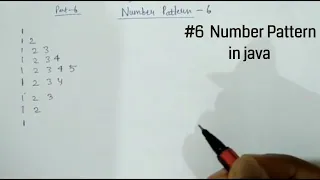 Part-6
Number Pattern - 6
#6 Number Pattern
in java
1
1 2
1 2 3
1 2 3 4
1 2 3 4 5
1 2 3 4
1 2 3
1 2
1